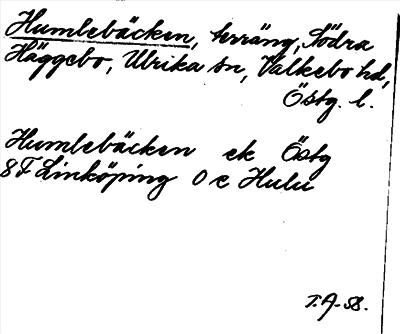 Humlebäcken, terräng, Södra
Häggebo, Ulrika sn, Valkebo hd,
Östg. l.
Humlebäcken ek Östg
8F Linköping 0 c Hulu
T.A-58.